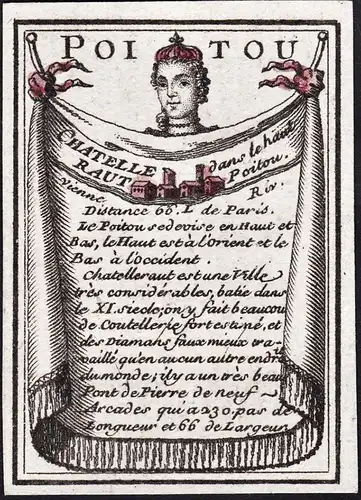 POITOU
CHATELLE dans le haut
RAUT Poitou.
vienne Riv.
Distance 66. L de Paris.
Le Poitou sedevise en Haut et
Bas, le Haut est à l'Orient et le
Bas à l'occident.
Chatelleraut est une Ville
très considérables, batie dans
le XI. siecle; on y fait beaucou
de Coutellerie fort estipé, et
des Diamans faux mieux tra-
vaillé qu'en aucun autre endri
du monde; il y a un très beau
Pont de Pierre de neuf
Arcades qui a 230. pas de
Longueur et 66 de Largeur